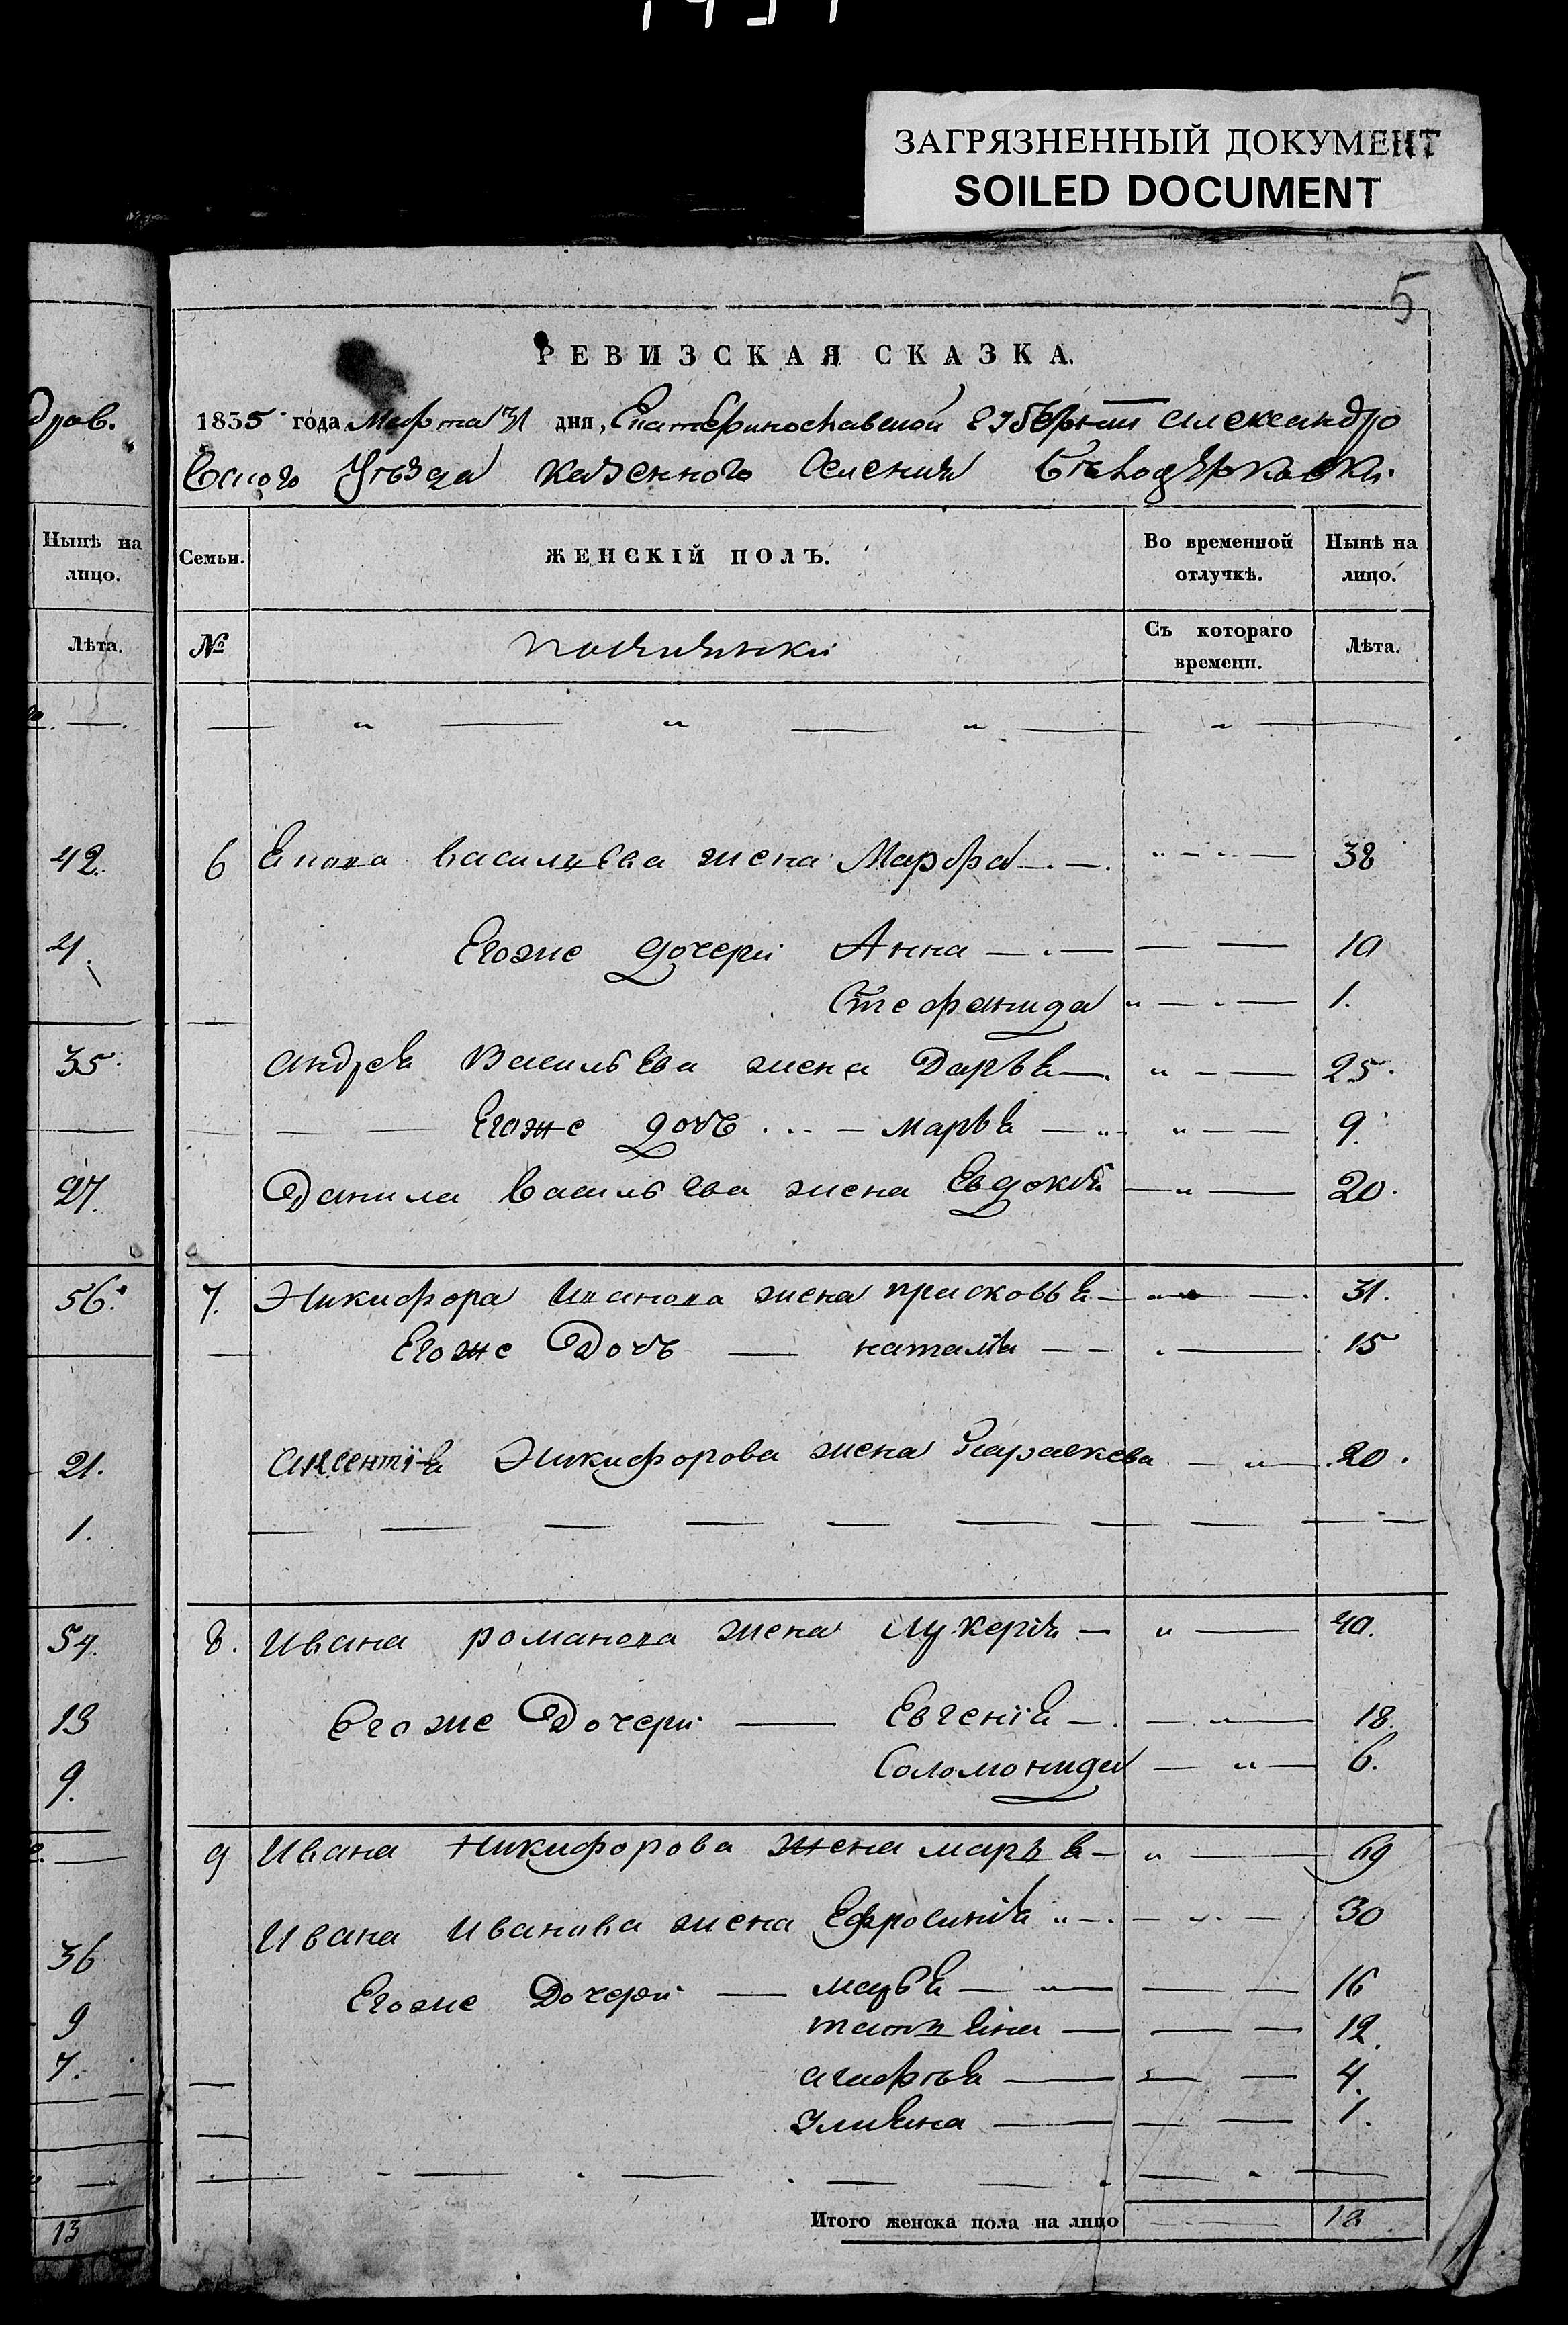 ЗАГРЯЗНЕННЫЙ ДОКУМЕНТ
SOILED DOCUMENT
5
РЕВИЗСКАЯ СКАЗКА.
1835 года Марта 31 дня, Екатеринославской Губернии Александро
вского Уѣзда казенного Селения Бѣлоцерковки.
драв.
Нынѣ на лицо.
Лѣта.
42.
4.
35.
27.
56.
21.
1.
54.
13
9.
36
9
7.
13
Семьи. ЖЕНСКІЙ ПОЛЪ. Во временной отлучкѣ. Нынѣ на лицо.
№ Съ котораго времени. Лѣта.
6 васильева жена Марфа 38
Егоже дочери Анна 10
Стефанида 1.
андрея Васильева жена Дарья 25.
Егоже дочь марья 9.
Данила васильева жена Евдокія 20.
7. Никифора Иванова жена прасковья 31.
Егоже Дочь наталія 15
авсентія Никифорова жена Параскева 20.
8. Ивана романова жена лукерія 40.
Егоже Дочери Евгенія 18.
Соломонида 6.
9 Ивана Никифорова жена марья 69
Ивана Иванова жена Ефросинія 30
Егоже Дочери марья 16
татьяна 12.
агафья 4.
ульяна 1.
Итого женска пола на лицо 18